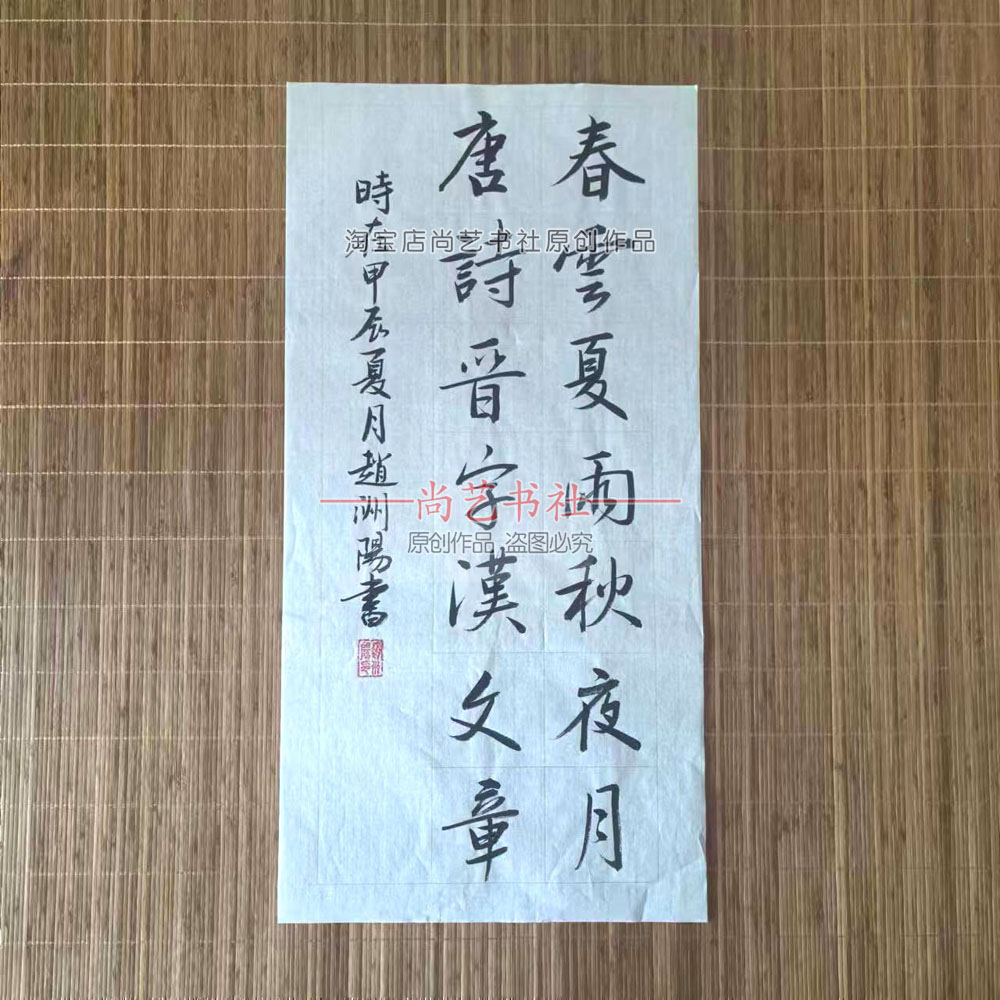 春雲夏雨秋夜月
唐詩晉字漢文章
時在甲辰夏月趙洲陽書
淘宝店尚艺书社原创作品
尚艺书社
原创作品 盗图必究